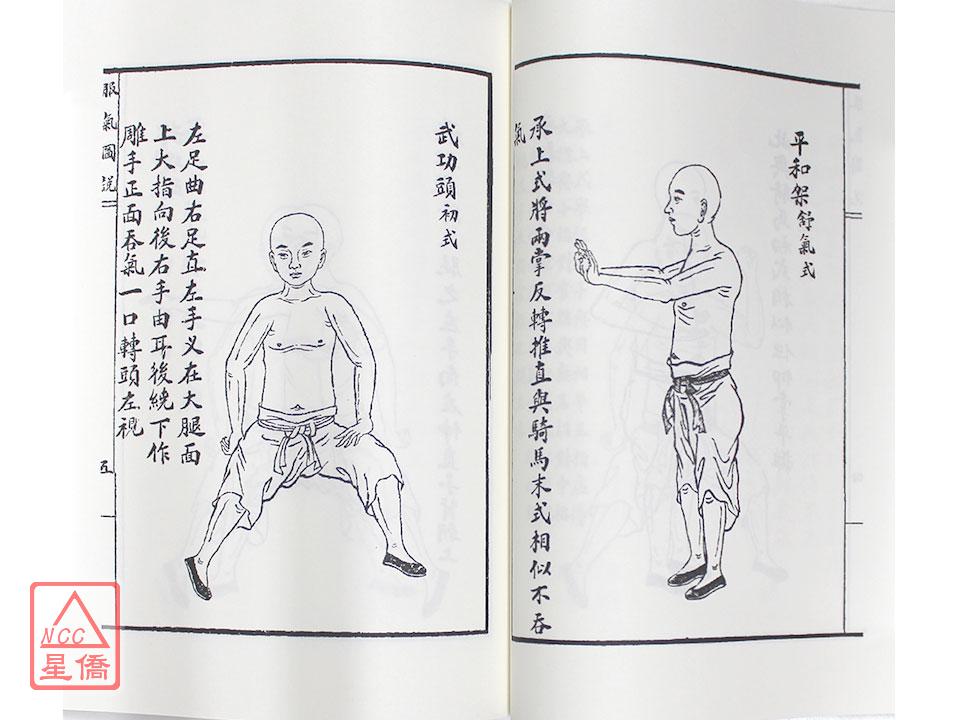 平和架舒氣式
承上式將兩掌反轉推直與騎馬末式相似不吞
氣
武功頭初式
左足曲右足直左手义在大腿面
上大指向後右手由耳後繞下作
雕手正面吞氣一口轉頭左視
服氣圖說
五
NCC
星僑